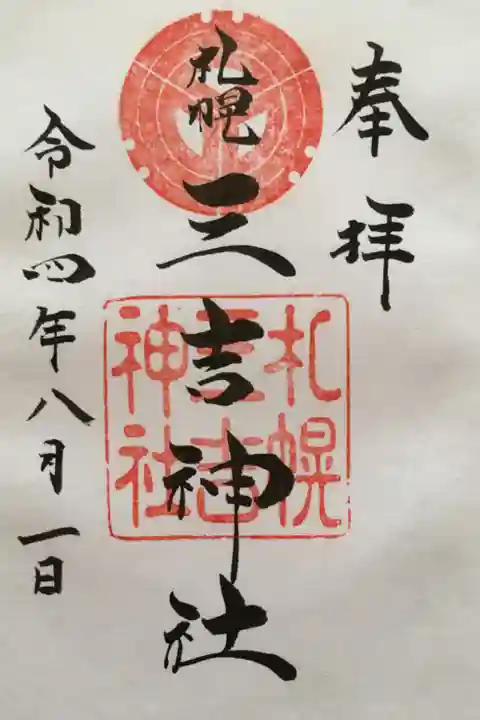 奉拝
札幌三吉神社
札幌
三吉
神社
令和四年八月一日